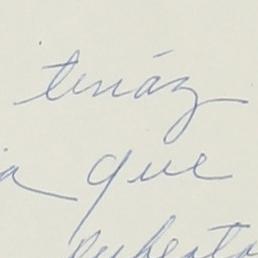 tenáz
a que